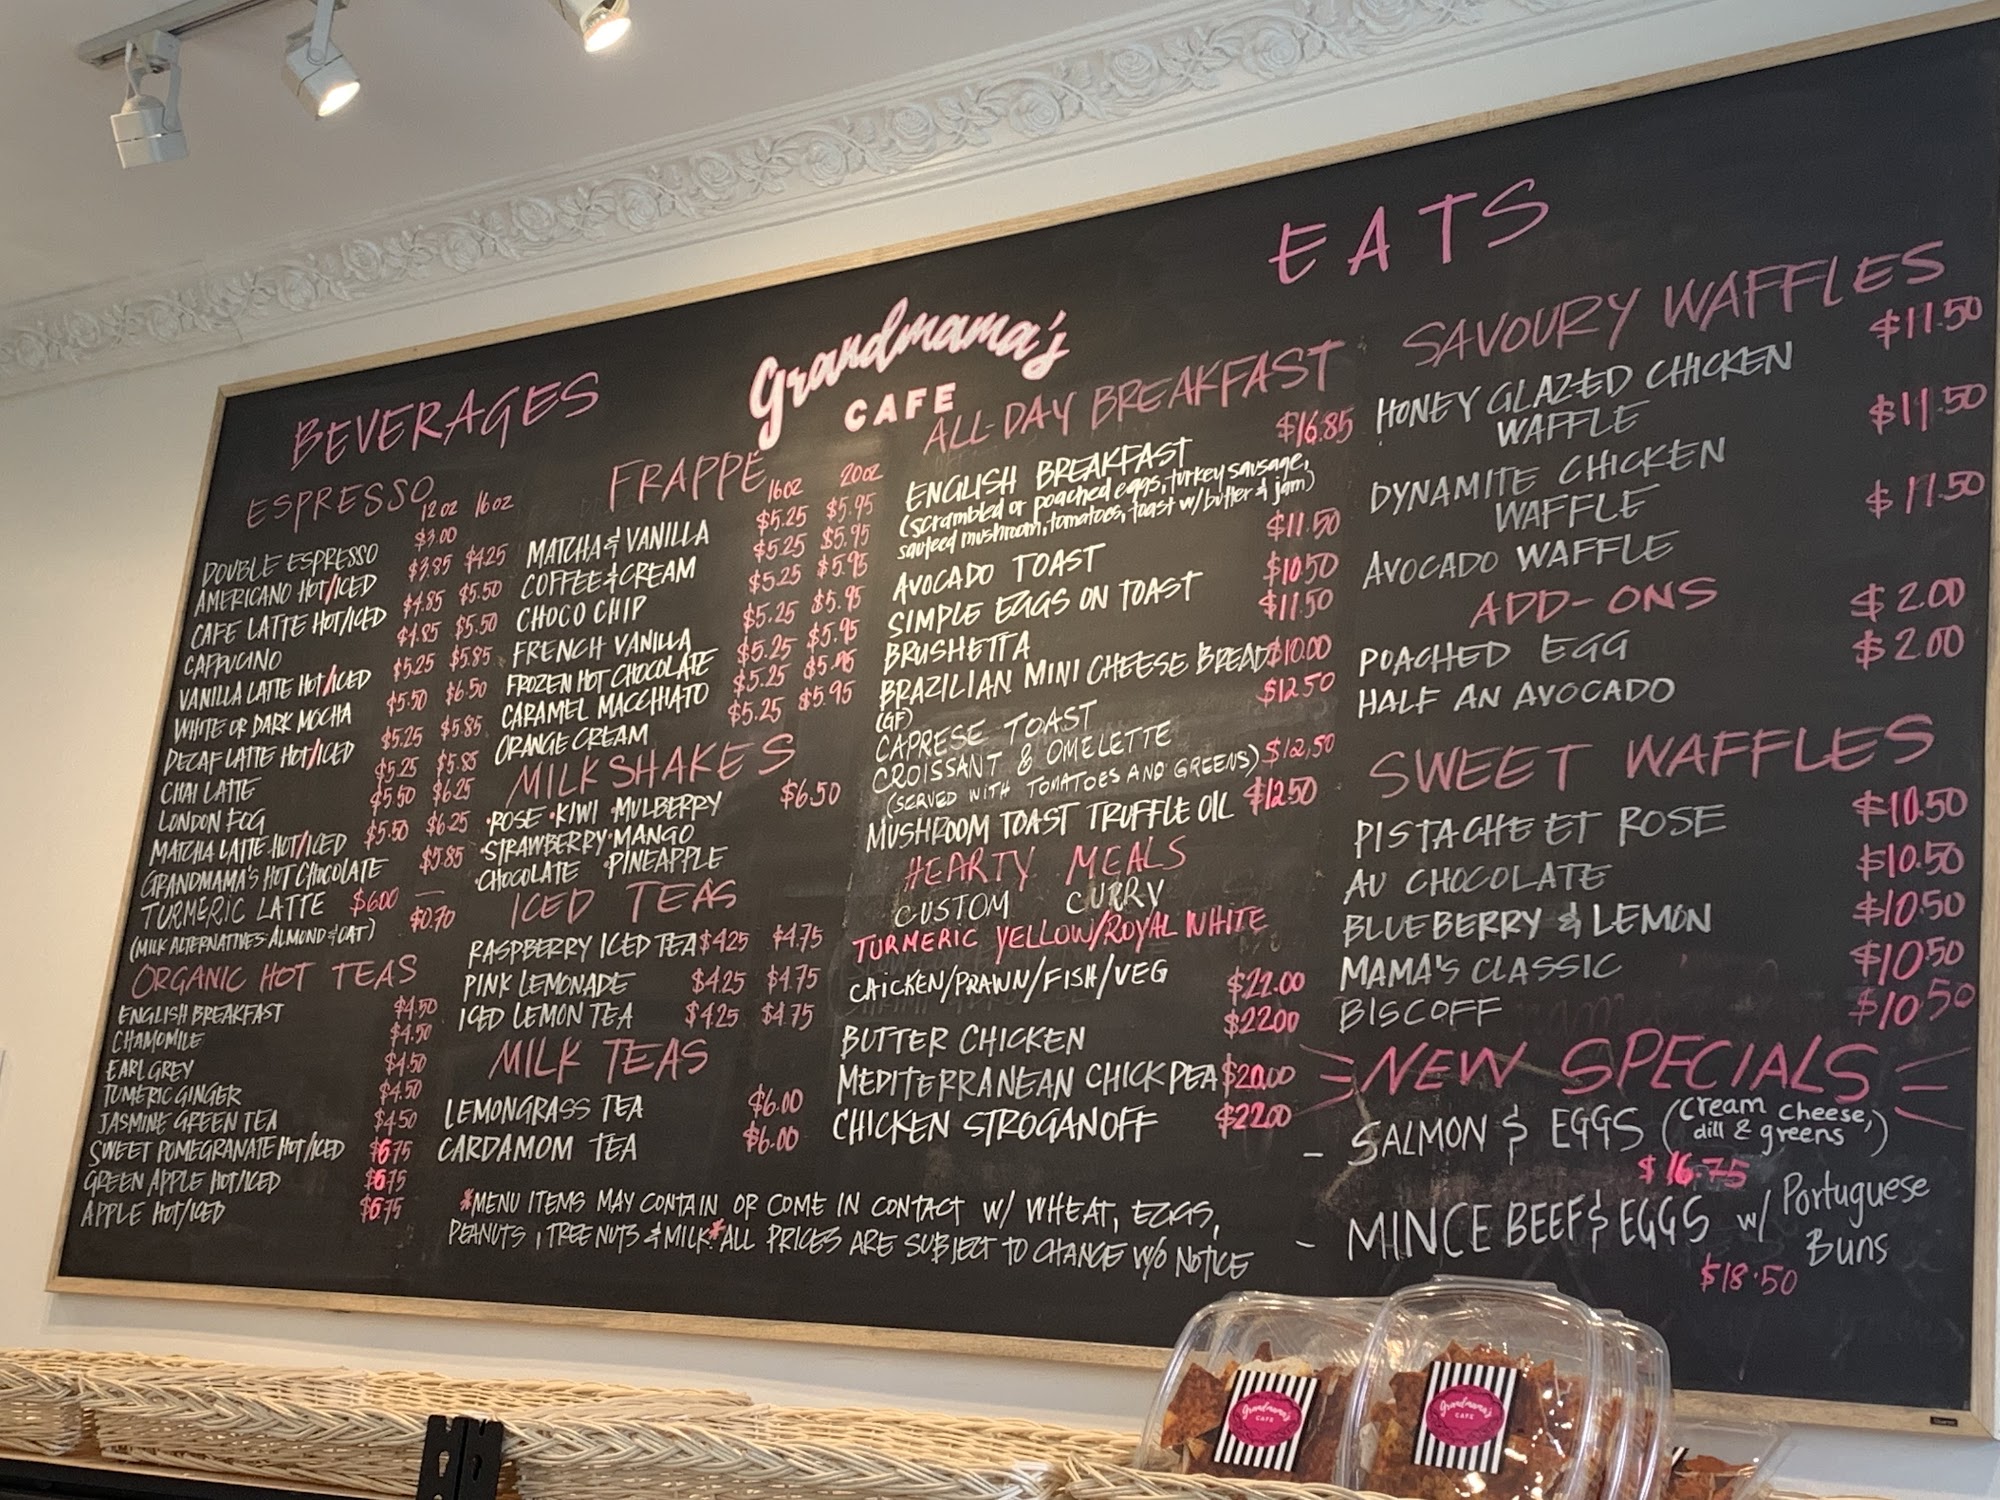 EATS
Grandmama's
CAFE
BEVERAGES
ESPRESSO
12 oz 16 oz
DOUBLE ESPRESSO $3.00
AMERICANO HOT/ICED $3.85 $4.25
CAFE LATTE HOT/ICED $4.85 $5.50
CAPPUCINO $4.85 $5.50
VANILLA LATTE HOT/ICED $5.25 $5.85
WHITE OR DARK MOCHA $5.50 $6.50
DECAF LATTE HOT/ICED $5.25 $5.85
CHAI LATTE $5.25 $5.85
LONDON FOG $5.50 $6.25
MATCHA LATTE HOT/ICED $5.50 $6.25
GRANDMAMA'S HOT CHOCOLATE $5.85
TURMERIC LATTE $6.00 —
(MILK ALTERNATIVES: ALMOND & OAT) $0.70
ORGANIC HOT TEAS
ENGLISH BREAKFAST $4.50
CHAMOMILE $4.50
EARL GREY $4.50
TUMERIC GINGER $4.50
JASMINE GREEN TEA $4.50
SWEET POMEGRANATE HOT/ICED $6.75
GREEN APPLE HOT/ICED $6.75
APPLE HOT/ICED $6.75
FRAPPÉ
16oz 20oz
MATCHA & VANILLA $5.25 $5.95
COFFEE & CREAM $5.25 $5.95
CHOCO CHIP $5.25 $5.95
FRENCH VANILLA $5.25 $5.95
FROZEN HOT CHOCOLATE $5.25 $5.95
CARAMEL MACCHIATO $5.25 $5.95
ORANGE CREAM $5.25 $5.95
MILKSHAKES
•ROSE •KIWI •MULBERRY $6.50
•STRAWBERRY •MANGO
•CHOCOLATE •PINEAPPLE
ICED TEAS
RASPBERRY ICED TEA $4.25 $4.75
PINK LEMONADE $4.25 $4.75
ICED LEMON TEA $4.25 $4.75
MILK TEAS
LEMONGRASS TEA $6.00
CARDAMOM TEA $6.00
*MENU ITEMS MAY CONTAIN OR COME IN CONTACT W/ WHEAT, EGGS,
PEANUTS, TREE NUTS & MILK.*ALL PRICES ARE SUBJECT TO CHANGE W/O NOTICE
ALL-DAY BREAKFAST
ENGLISH BREAKFAST $16.85
(scrambled or poached eggs, turkey sausage,
sauteed mushroom, tomatoes, toast w/ butter & jam)
AVOCADO TOAST $11.50
SIMPLE EGGS ON TOAST $10.50
BRUSHETTA $11.50
BRAZILIAN MINI CHEESE BREAD $10.00
(GF)
CAPRESE TOAST $12.50
CROISSANT & OMELETTE
(SERVED WITH TOMATOES AND GREENS) $12.50
MUSHROOM TOAST TRUFFLE OIL $12.50
HEARTY MEALS
CUSTOM CURRY
TURMERIC YELLOW/ROYAL WHITE
CHICKEN/PRAWN/FISH/VEG $22.00
BUTTER CHICKEN $22.00
MEDITERRANEAN CHICKPEA $20.00
CHICKEN STROGANOFF $22.00
SAVOURY WAFFLES
HONEY GLAZED CHICKEN $11.50
WAFFLE
DYNAMITE CHICKEN $11.50
WAFFLE
AVOCADO WAFFLE $11.50
ADD-ONS
POACHED EGG $2.00
HALF AN AVOCADO $2.00
SWEET WAFFLES
PISTACHE ET ROSE $10.50
AU CHOCOLATE $10.50
BLUEBERRY & LEMON $10.50
MAMA'S CLASSIC $10.50
BISCOFF $10.50
NEW SPECIALS
- SALMON & EGGS (cream cheese,
dill & greens)
$16.75
- MINCE BEEF & EGGS w/ Portuguese
Buns
$18.50
Grandmama's
CAFE
Grandmama's
CAFE